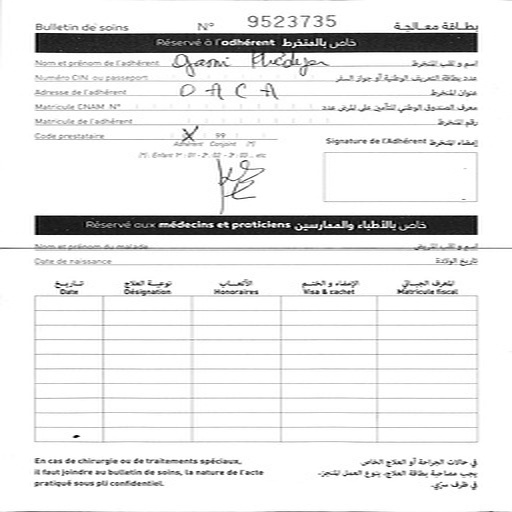 Bulletin de soins N° 9523735 بطاقة معالجة
Réservé à l'adhérent خاص بالمنخرط
Nom et prénom de l'adhérent إسم و لقب المنخرط
Numéro CIN ou passeport عدد بطاقة التعريف الوطنية أو جواز السفر
Adresse de l'adhérent O A C A عنوان المنخرط
Matricule CNAM N° معرف الصندوق الوطني للتأمين على المرض عدد
Matricule de l'adhérent رقم المنخرط
Code prestataire X 99
Adhérent Conjoint (*)
(*) : Enfant 1er : 01 - 2e : 02 - 3e : 03 ... etc
Signature de l'Adhérent إمضاء المنخرط
Réservé aux médecins et praticiens خاص بالأطباء والممارسين
Nom et prénom du malade إسم و لقب المريض
Date de naissance تاريخ الولادة
تاريخ نوعية العلاج الأتعاب الإمضاء و الختم المعرف الجبائي
Date Désignation Honoraires Visa & cachet Matricule fiscal
En cas de chirurgie ou de traitements spéciaux,
il faut joindre au bulletin de soins, la nature de l'acte
pratiqué sous pli confidentiel.
في حالات الجراحة أو العلاج الخاص
يجب مصاحبة بطاقة العلاج، بنوع العمل المنجز،
في ظرف سري.